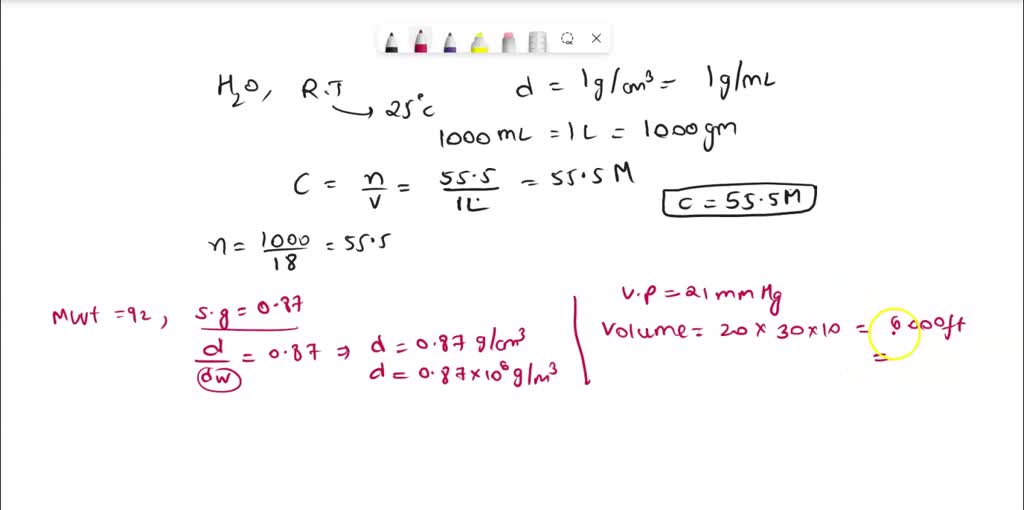 H₂O, R.T → 25°C
d = 1g/cm³ = 1g/mL
1000 mL = 1L = 1000 gm
C = n/v = 55.5/1L = 55.5 M
C = 55.5M
n = 1000/18 = 55.5
Mwt = 92, s.g = 0.87
d/dw = 0.87 ⇒ d = 0.87 g/cm³
d = 0.87 × 10⁶ g/m³
V.P = 21 mm Hg
Volume = 20 × 30 × 10 = 6000ft
=